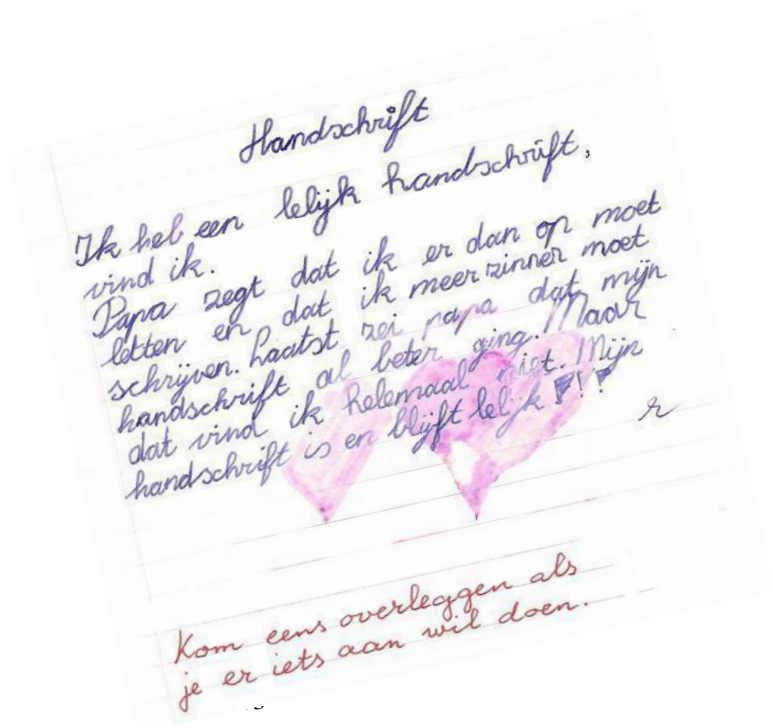 Handschrift
Ik heb een lelijk handschrift,
vind ik.
Papa zegt dat ik er dan op moet
letten en dat ik meer zinnen moet
schrijven. Laatst zei papa dat mijn
handschrift al beter ging. Maar
dat vind ik helemaal niet. Mijn
handschrift is en blijft lelijk!!!
r
Kom eens overleggen als
je er iets aan wil doen.